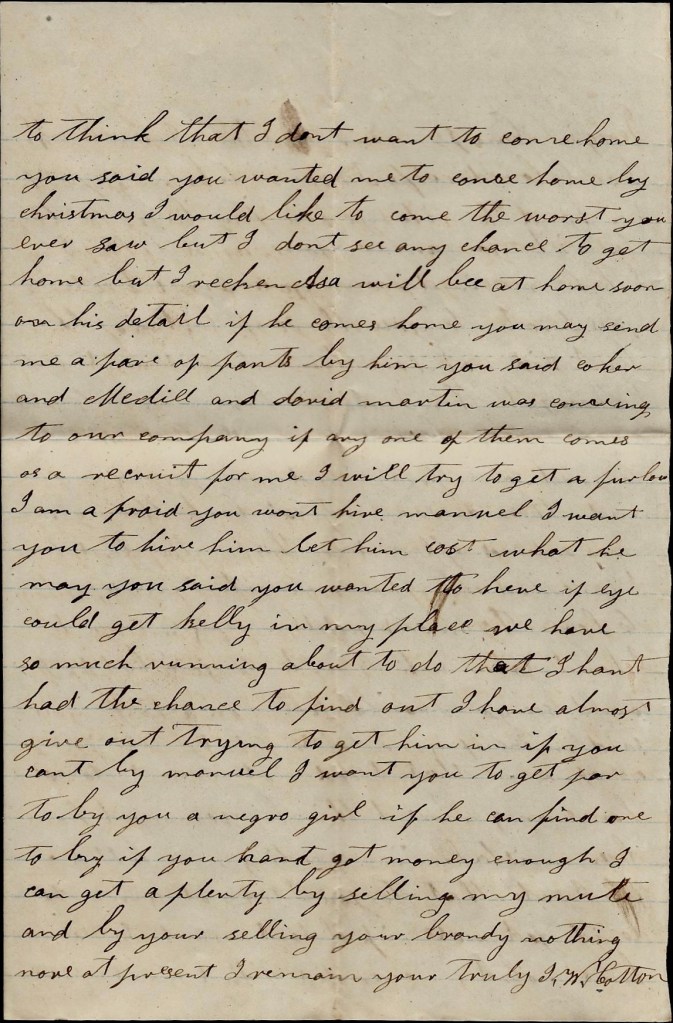 to think that I dont want to come home
you said you wanted me to come home by
christmas I would like to come the worst you
ever saw but I dont see any chance to get
home but I recken Asa will bee at home soon
on his detail if he comes home you may send
me a pare of pants by him you said coker
and Medill and david martin was comeing
to our company if any one of them comes
as a recruit for me I will try to get a furlow
I am a fraid you wont hire manuel I want
you to hire him let him cost what he
may you said you wanted to here if eye
could get kelly in my place we have
so much running about to do that I hant
had the chance to find out I have almost
give out trying to get him in if you
cant by manuel I want you to get par
to by you a negro girl if he can find one
to by if you hant got money enough I
can get a plenty by selling my mule
and by your selling your brandy nothing
more at present I remain your truly J. W. Cotton